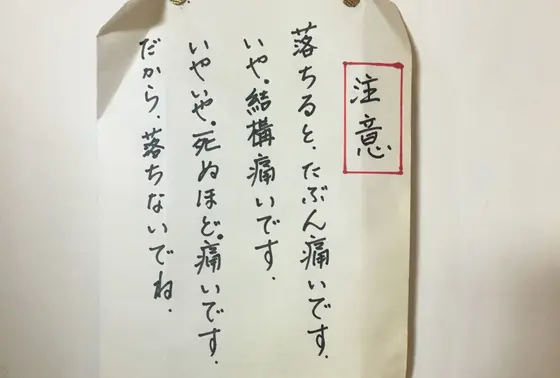 注意
落ちると、たぶん痛いです。
いや。結構痛いです。
いやいや。死ぬほど。痛いです。
だから、落ちないでね。